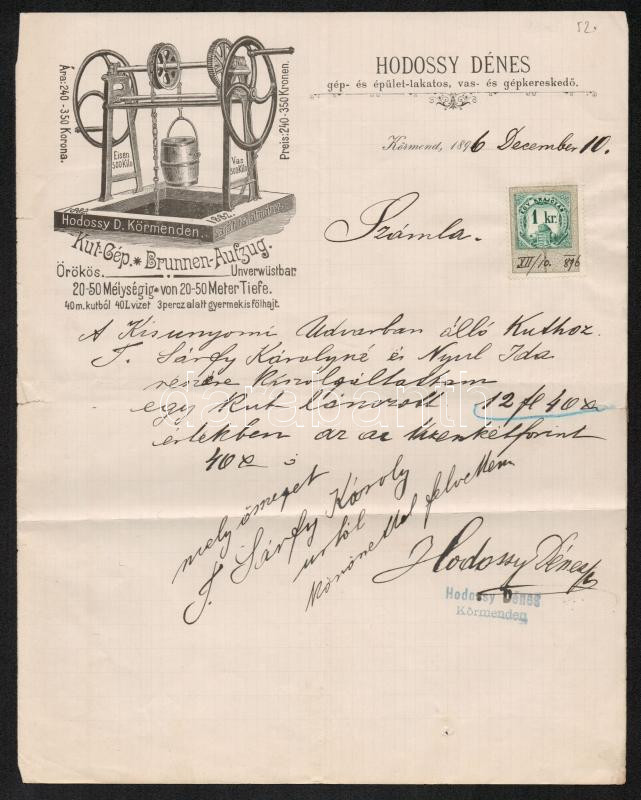 52.
Ára: 240-350 Korona.
Preis: 240-350 Kronen.
Eisen 500 Kilo
Vas 500 Kilo
Hodossy D. Körmenden.
1892.
Kut-Gép.* Brunnen-Aufzug.
Örökös. Unverwüstbar
20-50 Mélységig * von 20-50 Meter Tiefe.
40 m. kutból 40 L vizet 3 percz alatt gyermek is fölhajt.
HODOSSY DÉNES
gép- és épület-lakatos, vas- és gépkereskedő.
Körmend, 1896 December 10.
1 kr.
XII/10. 896
Számla.
A Kisunyomi Udvarban álló Kuthoz
F. Sárfy Károlyné és Nyul Ida
részére kiszolgáltattam
egy Kut lánczott 12 fl 40 x
értékben az az tizenkétforint
40 x
mely ömeget
F. Sárfy Károly
urtól
köszönettel felvettem
Hodossy Dénes
Hodossy Dénes
Körmenden
darabanth